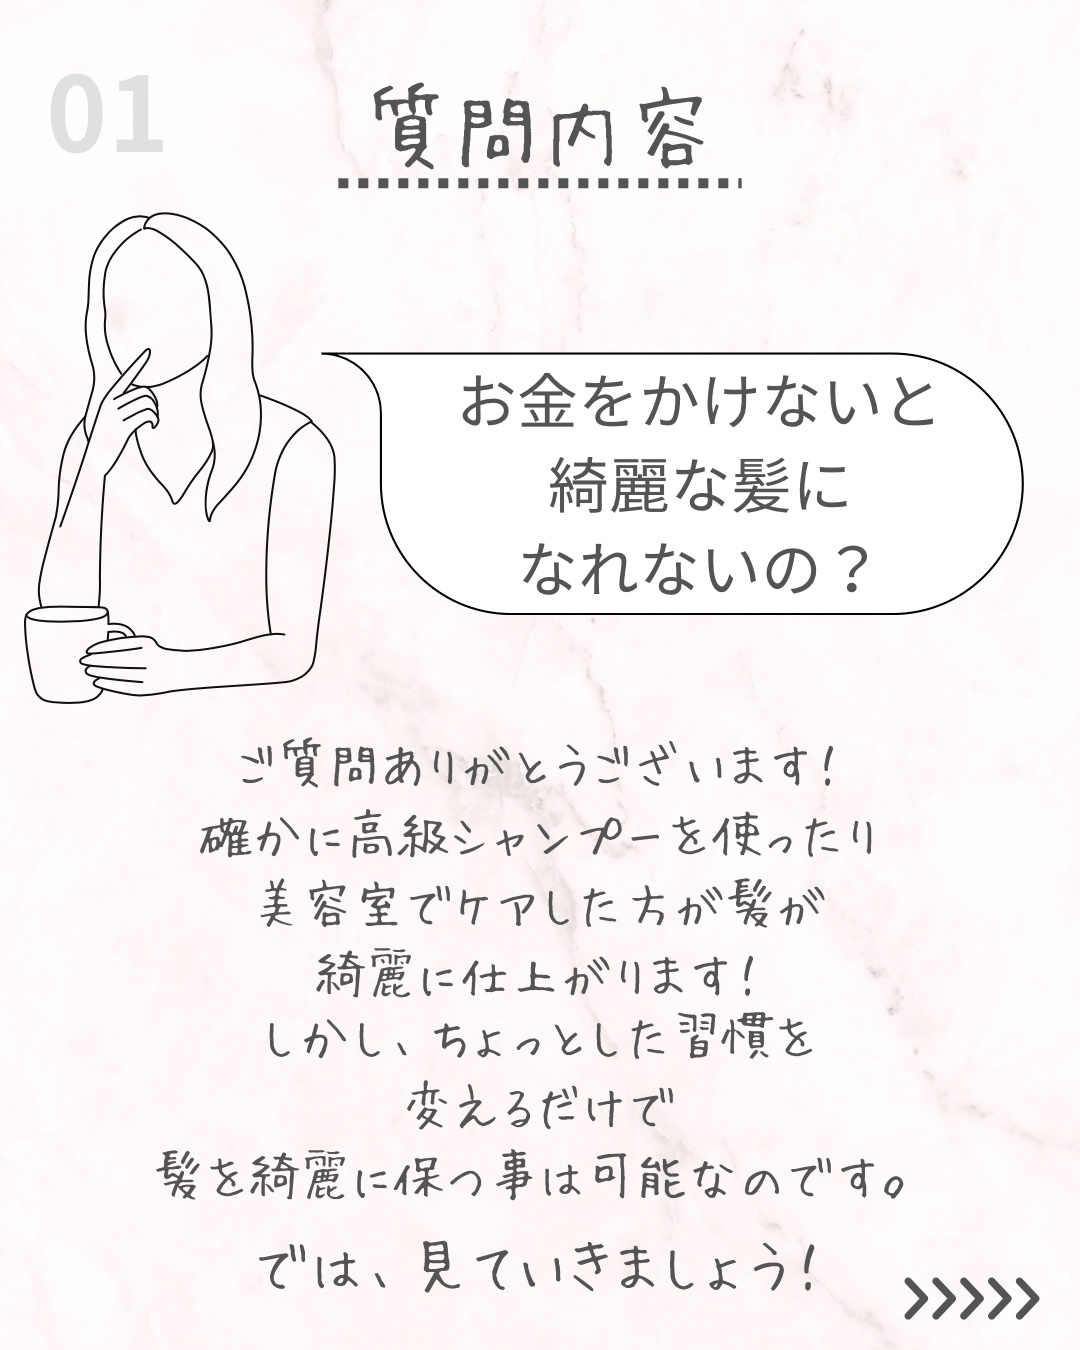 01
質問内容
お金をかけないと
綺麗な髪に
なれないの？
ご質問ありがとうございます！
確かに高級シャンプーを使ったり
美容室でケアした方が髪が
綺麗に仕上がります！
しかし、ちょっとした習慣を
変えるだけで
髪を綺麗に保つ事は可能なのです。
では、見ていきましょう！